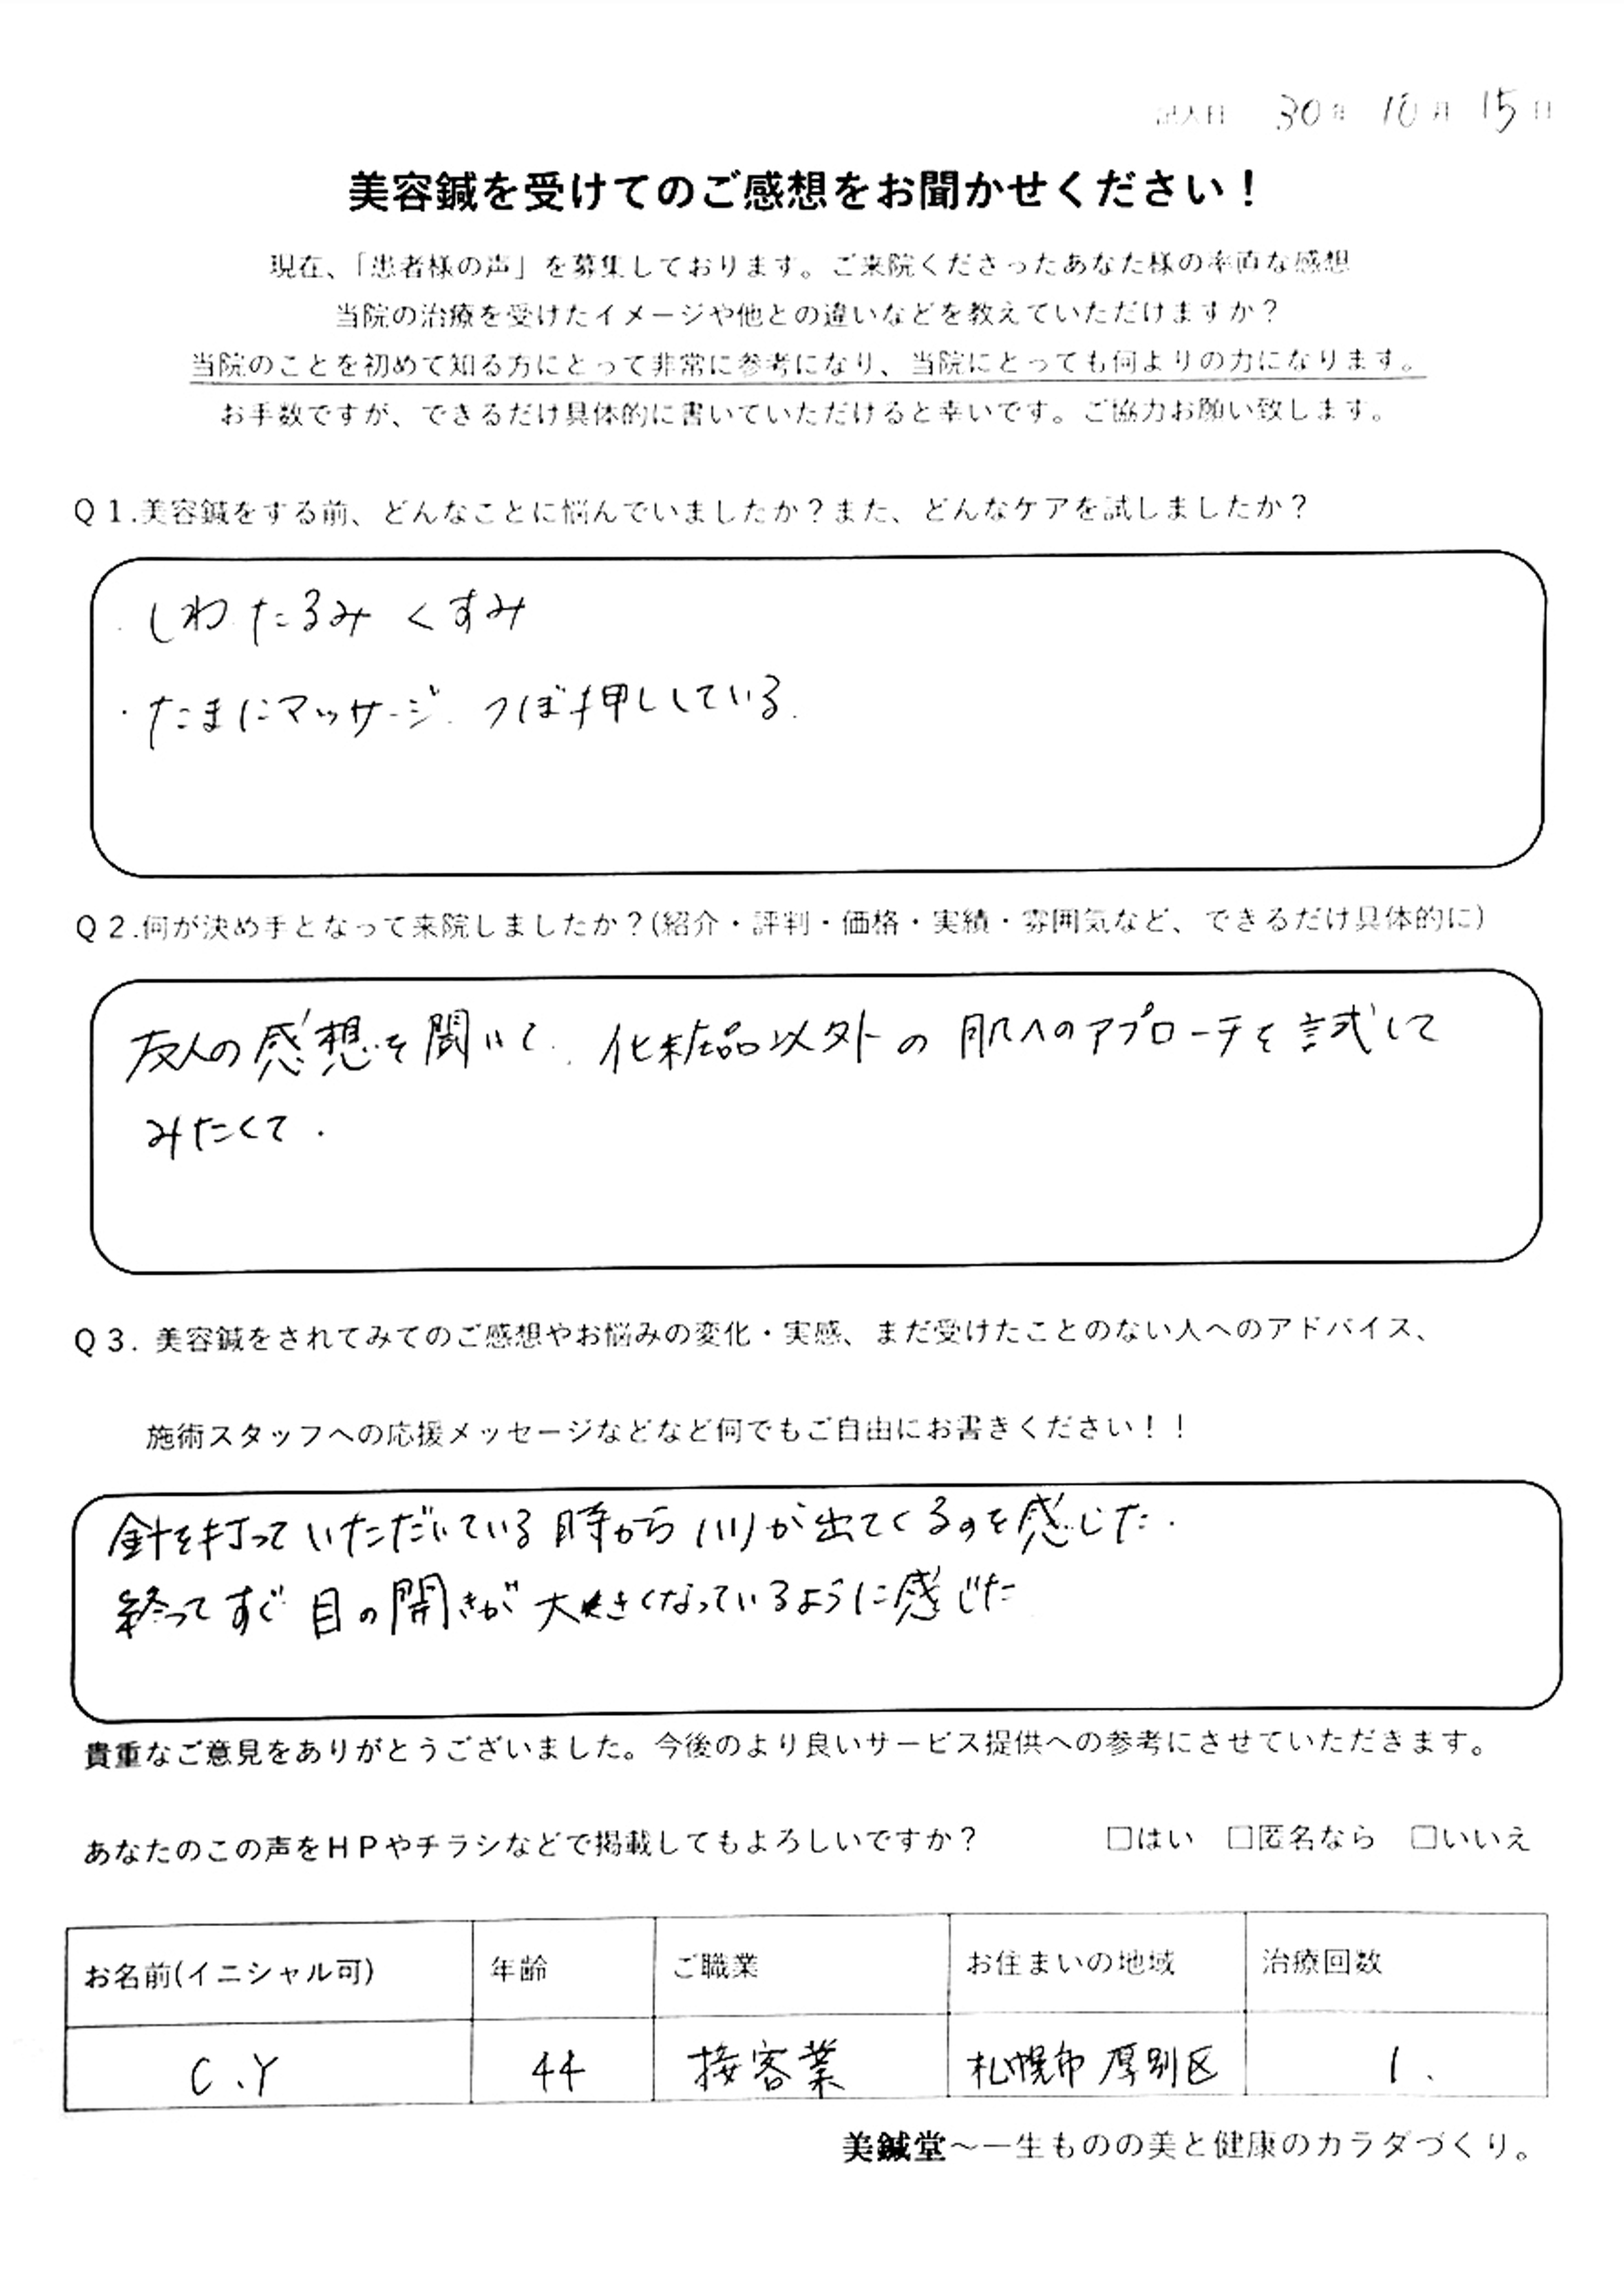 記入日 30年 10月 15日
美容鍼を受けてのご感想をお聞かせください！
現在、「患者様の声」を募集しております。ご来院くださったあなた様の率直な感想
当院の治療を受けたイメージや他との違いなどを教えていただけますか？
当院のことを初めて知る方にとって非常に参考になり、当院にとっても何よりの力になります。
お手数ですが、できるだけ具体的に書いていただけると幸いです。ご協力お願い致します。
Ｑ１.美容鍼をする前、どんなことに悩んでいましたか？また、どんなケアを試しましたか？
・しわ たるみ くすみ
・たまにマッサージ、つぼ押ししている。
Ｑ２.何が決め手となって来院しましたか？(紹介・評判・価格・実績・雰囲気など、できるだけ具体的に)
友人の感想を聞いて、化粧品以外の肌へのアプローチを試して
みたくて.
Ｑ３. 美容鍼をされてみてのご感想やお悩みの変化・実感、まだ受けたことのない人へのアドバイス、
施術スタッフへの応援メッセージなどなど何でもご自由にお書きください！！
針を打っていただいている時から が出てくるのを感じた.
終ってすぐ目の開きが大きくなっているように感じた
貴重なご意見をありがとうございました。今後のより良いサービス提供への参考にさせていただきます。
あなたのこの声をＨＰやチラシなどで掲載してもよろしいですか？ □はい □匿名なら □いいえ
お名前(イニシャル可) 年齢 ご職業 お住まいの地域 治療回数
C.Y 44 接客業 札幌市厚別区 1.
美鍼堂～一生ものの美と健康のカラダづくり。